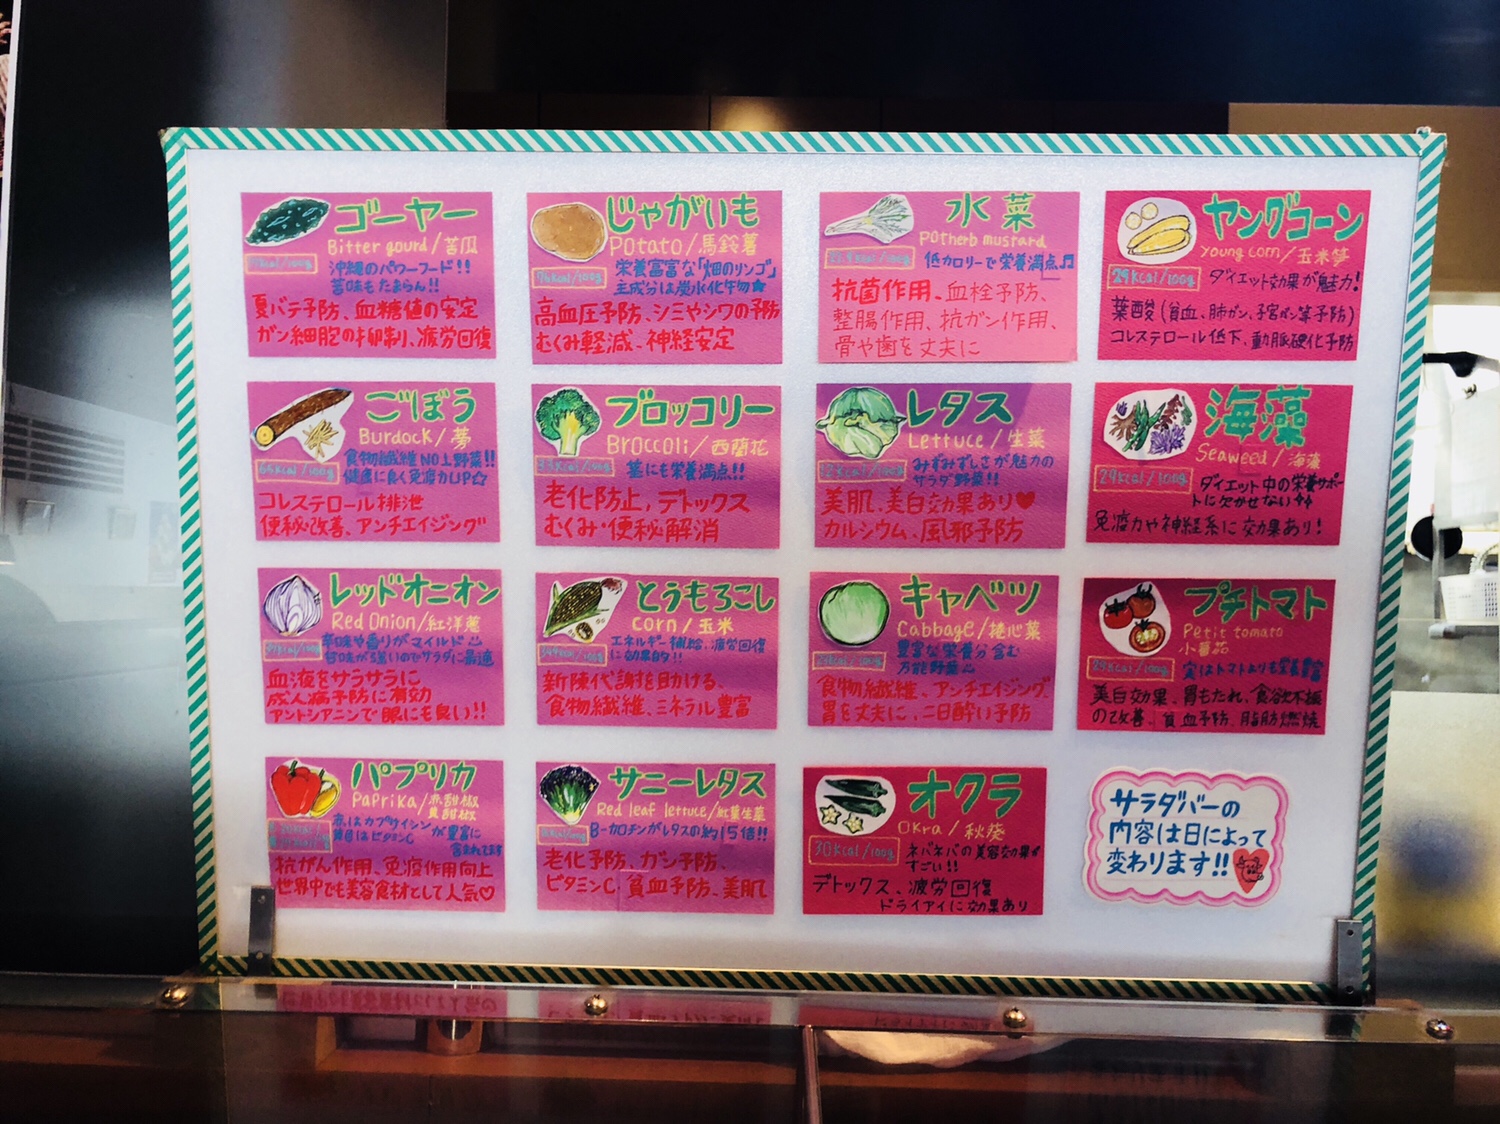 ゴーヤー
Bitter gourd/苦瓜
沖縄のパワーフード!!
苦味もたまらん!!
夏バテ予防、血糖値の安定
ガン細胞の抑制、疲労回復
じゃがいも
Potato/馬鈴薯
76kcal/100g
栄養富富な「畑のリンゴ」
主成分は炭水化物★
高血圧予防、シミやシワの予防
むくみ軽減、神経安定
水菜
Potherb mustard
低カロリーで栄養満点♬
抗菌作用、血栓予防、
整腸作用、抗ガン作用、
骨や歯を丈夫に
ヤングコーン
young corn/玉米筍
29kcal/100g
ダイエット効果が魅力!
葉酸(貧血、肺ガン、子宮ガン等予防)
コレステロール低下、動脈硬化予防
ごぼう
Burdock/蒡
65kcal/100g
食物繊維NO.1野菜!!
健康に良く免疫力UP☆
コレステロール排泄
便秘改善、アンチエイジング
ブロッコリー
Broccoli/西蘭花
33kcal/100g
茎にも栄養満点!!
老化防止、デトックス
むくみ・便秘解消
レタス
Lettuce/生菜
12kcal/100g
みずみずしさが魅力の
サラダ野菜!!
美肌、美白効果あり♥
カルシウム、風邪予防
海藻
Seaweed/海藻
29kcal/100g
ダイエット中の栄養サポー
トに欠かせない
免疫力や神経系に効果あり!
レッドオニオン
Red Onion/紅洋葱
辛味や香りがマイルド
甘味が強いのでサラダに最適
血液をサラサラに
成人病予防に有効
アントシアニンで眼にも良い!!
とうもろこし
Corn/玉米
エネルギー補給、疲労回復
に効果的!!
新陳代謝を助ける、
食物繊維、ミネラル豊富
キャベツ
Cabbage/捲心菜
豊富な栄養分含む
万能野菜
食物繊維、アンチエイジング
胃を丈夫に、二日酔い予防
プチトマト
Petit tomato
小蕃茄
29kcal/100g
実はトマトよりも栄養豊富
美白効果、胃もたれ、食欲不振
の改善、貧血予防、脂肪燃焼
パプリカ
Paprika/赤甜椒
黄甜椒
赤はカプサイシン
黄色はビタミンC
が豊富に
含まれてます
抗がん作用、免疫作用向上
世界中でも美容食材として人気♡
サニーレタス
Red leaf lettuce/紅葉生菜
B-カロチンがレタスの約15倍!!
老化予防、ガン予防、
ビタミンC、貧血予防、美肌
オクラ
Okra/秋葵
30kcal/100g
ネバネバの美容効果が
すごい!!
デトックス、疲労回復
ドライアイに効果あり
サラダバーの
内容は日によって
変わります!!